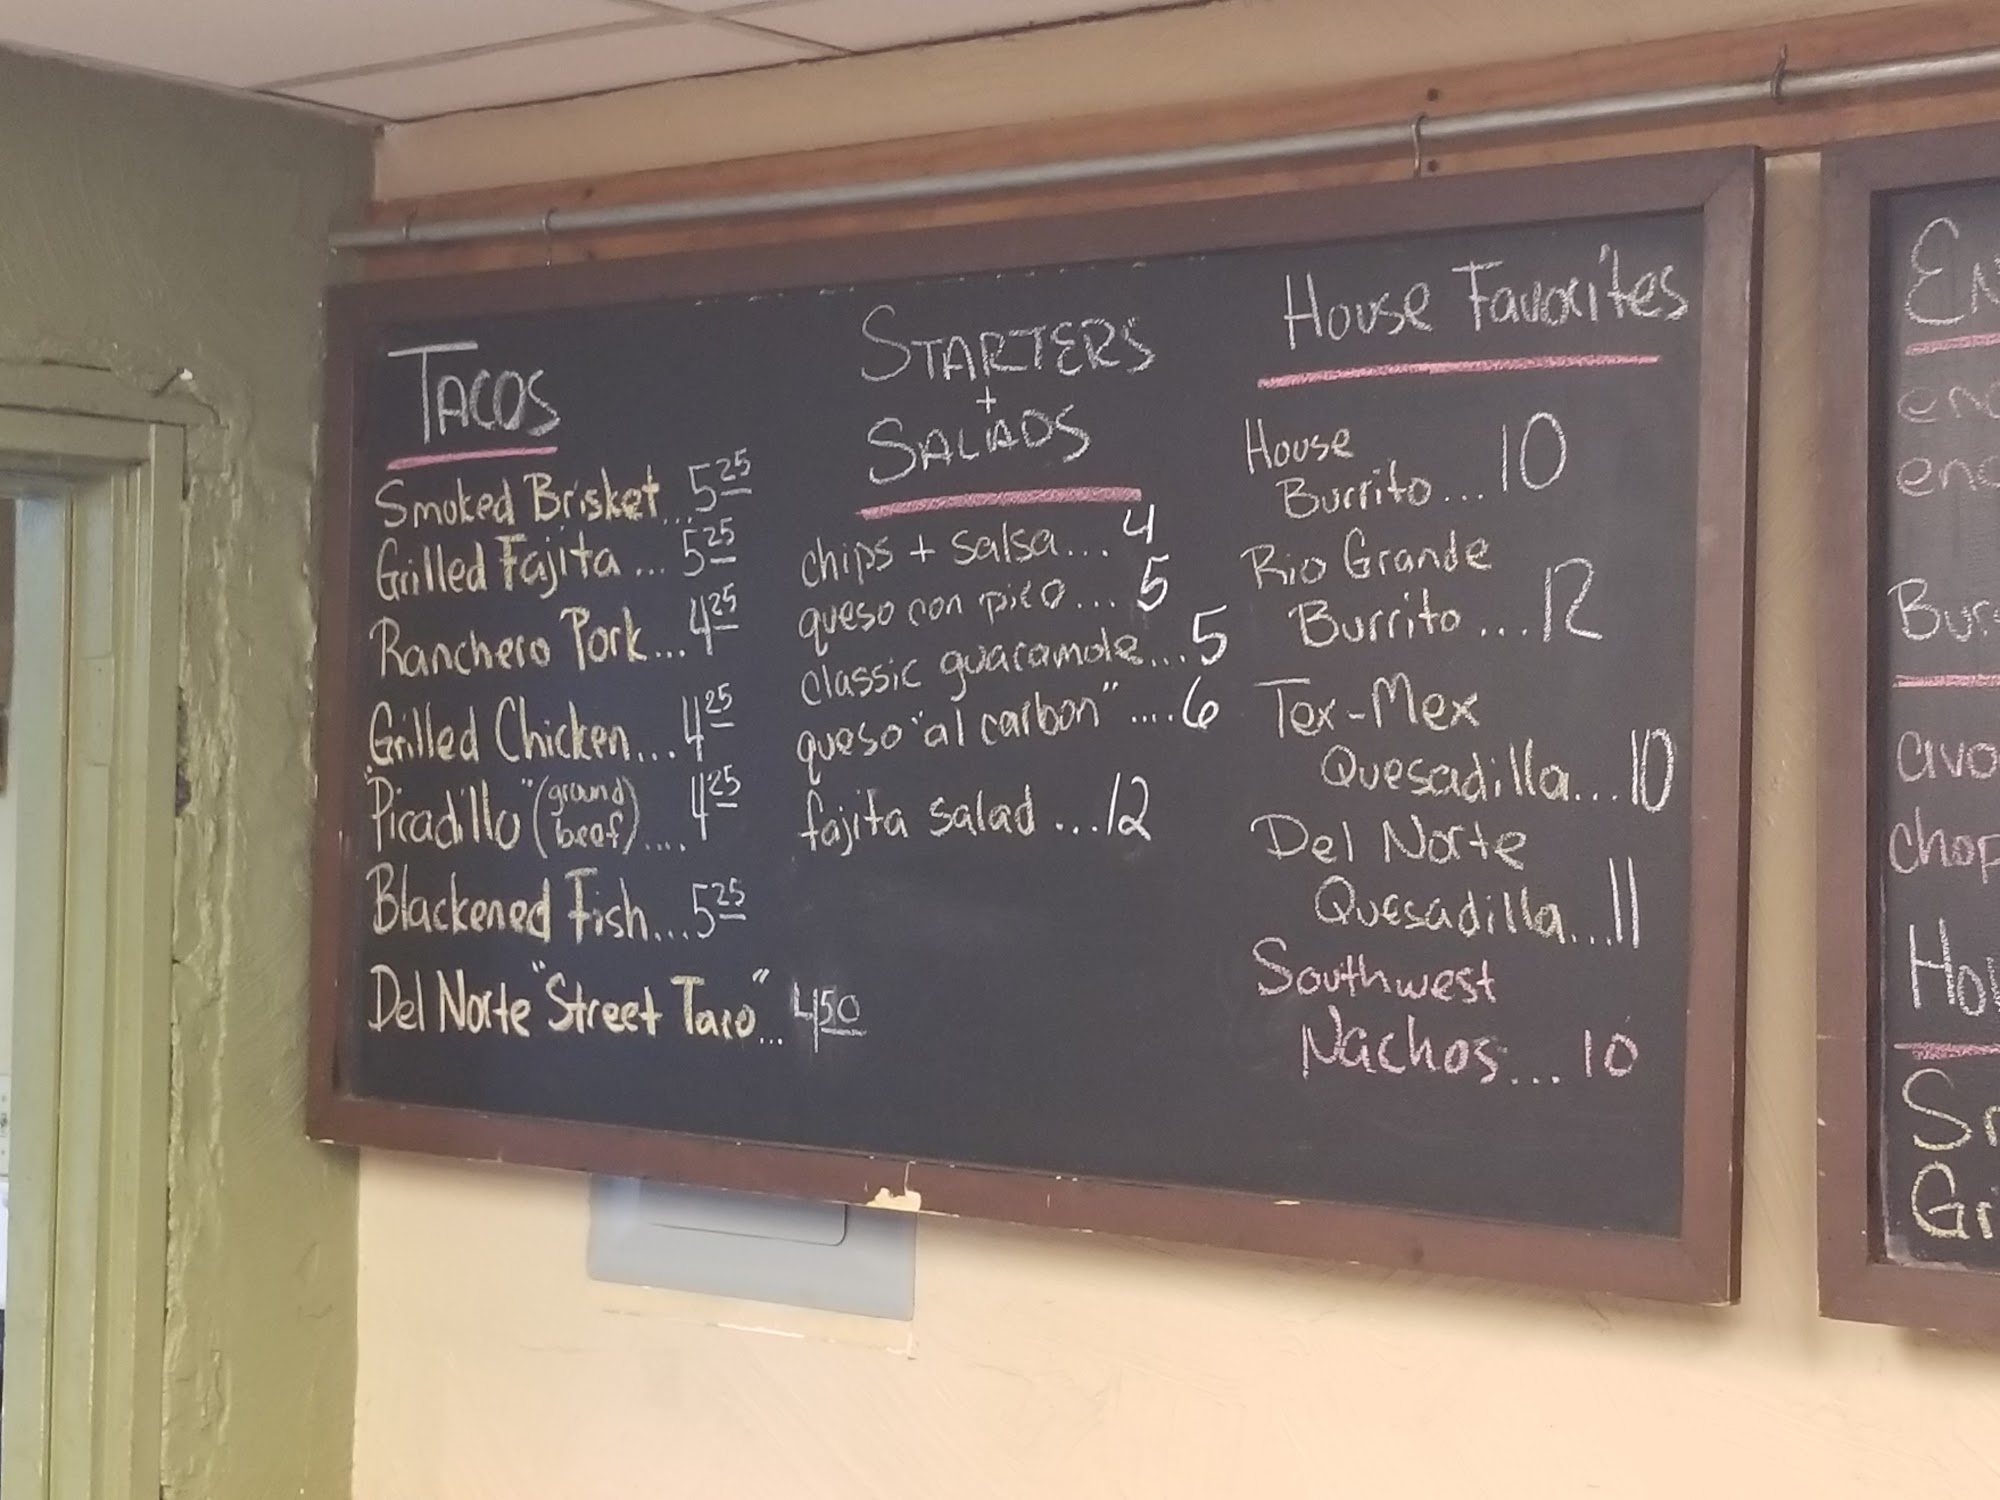 TACOS
Smoked Brisket... 5 25
Grilled Fajita ... 5 25
Ranchero Pork... 4 25
Grilled Chicken... 4 25
"Picadillo" (ground beef).... 4 25
Blackened Fish... 5 25
Del Norte "Street Taco"... 4 50
STARTERS
+
SALADS
chips + salsa... 4
queso con pico... 5
classic guacamole... 5
queso "al carbon".... 6
fajita salad ... 12
House Favorites
House
Burrito... 10
Rio Grande
Burrito ... 12
Tex-Mex
Quesadilla... 10
Del Norte
Quesadilla... 11
Southwest
Nachos... 10